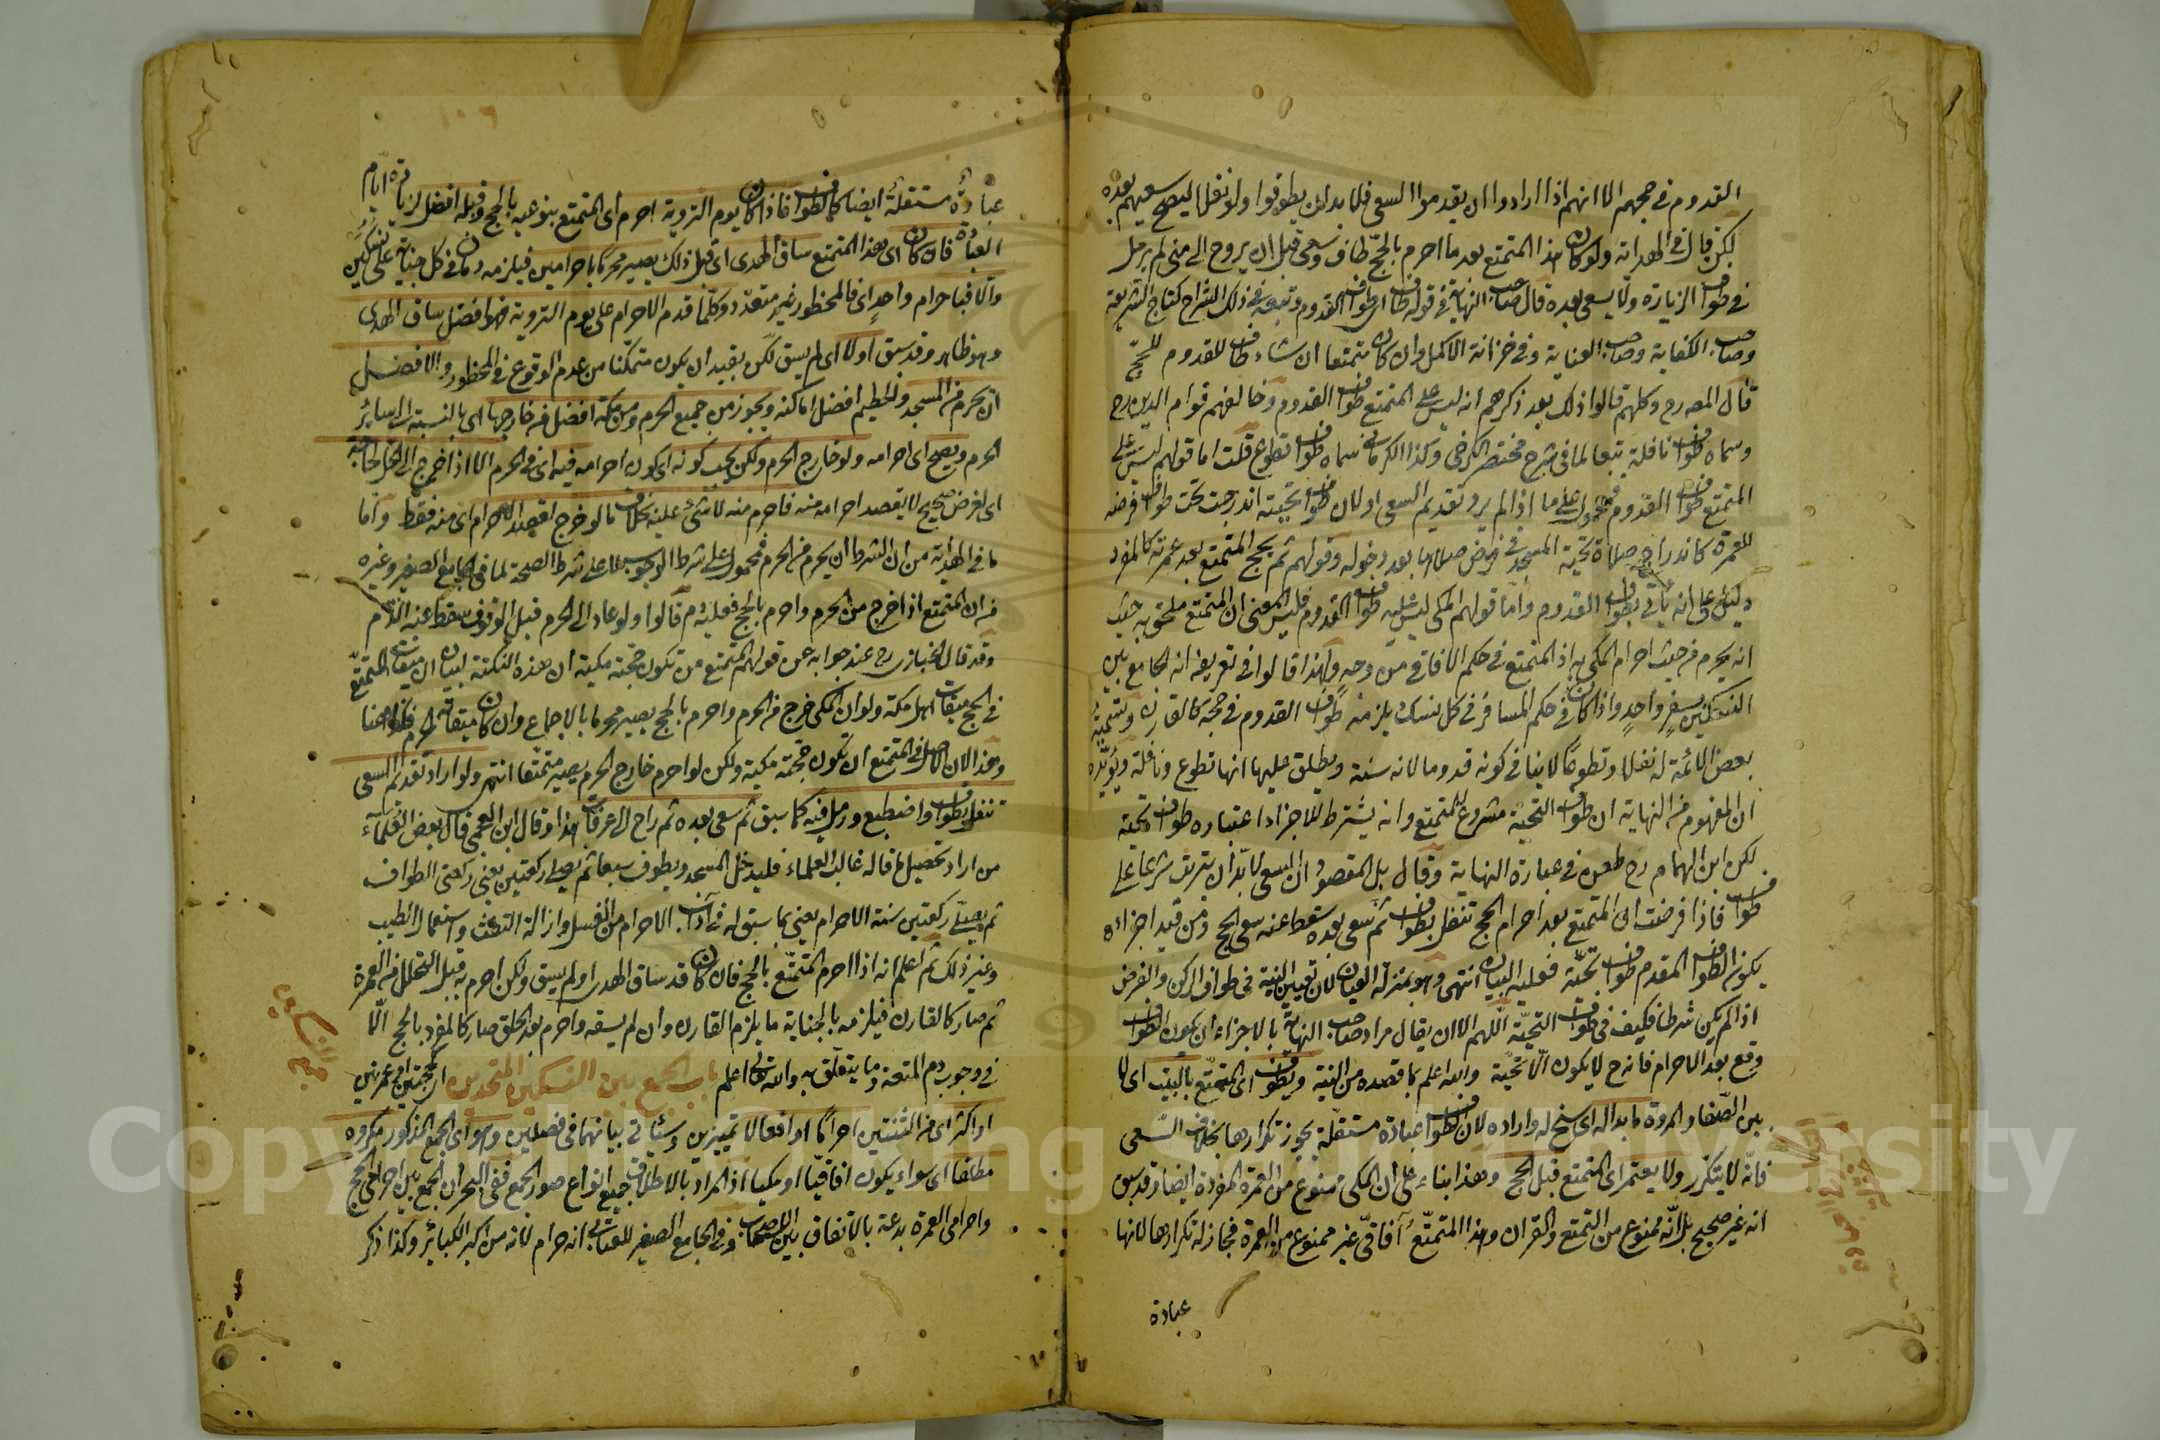 القدوم في حجهم الا انهم اذا ارادوا ان يقدموا السعي فلا بد لهن يطوفوا ولو نفلا ليصح سعيهم بعده
لكن قال في الهداية ولو كان هذا المتمتع بعد ما احرم بالحج طاف وسعى قبل ان يروح الى منى لم يرمل
في طواف الزيارة ولا يسعى بعده قال صاحب النهاية في قوله طاف اى طواف القدوم وتبعه في ذلك الشراح كتاج الشريعة
وصاحب الكفاية وصاحب العناية وفي خزانة الاكمل وان كان متمتعا ان شاء طاف للقدوم للحج
قال المص رح وكلهم قالوا ذلك بعد ذكرهم انه ليس على المتمتع طواف القدوم وخالفهم قوام الدين رح
وسماه طواف نافلة تبعا لما في شرح مختصر الكرخي وكذا الكرماني سماه طواف تطوع قلت اما قولهم ليس على
المتمتع طواف القدوم فمحمول على ما اذا لم يرد تقديم السعي او لان طواف تحيته اندرجت تحت طواف فرضه
للعمرة كاندراج صلاة تحية المسجد في فرض صلاها بعد دخوله وقولهم ثم يحج المتمتع بعد عمرته كالمفرد
دليل على انه يأتي بطواف القدوم واما قولهم المكي ليس عليه طواف القدوم فليس المعنى ان المتمتع ملحق به حيث
انه يحرم من حيث احرام المكي به اذ المتمتع في حكم الافاقي من وجه ولهذا قالوا في تعريفه انه الجامع بين
النسكين بسفر واحد واذا كان في حكم المسافر في كل نسك يلزمه طواف القدوم في حجه كالقارن وتسمية
بعض الائمة له نفلا وتطوعا لا ينافي كونه قدوما لانه سنة ويطلق عليها انها تطوع ونافلة ويؤيده
ان المفهوم من النهاية ان طواف التحية مشروع للمتمتع وانه يشترط للاجزاء اعتباره طواف تحية
لكن ابن الهمام رح طعن في عبارة النهاية وقال بل المقصود ان السعي لا بد ان يترتب شرعا على
طواف فاذا فرضت ان المتمتع بعد احرام الحج تنفل بطواف ثم سعى بعده سقط عنه سعي الحج ومن قيد اجزاءه
بكون الطواف المقدم طواف تحية فعليه البيان انتهى وهو بمنزلة العيان لان تعيين النية في طواف الركن والفرض
اذا لم يكن شرطا فكيف في طواف التحية اللهم الا ان يقال مراد صاحب النهاية بالاجزاء ان يكون الطواف
وقع بعد الاحرام فانه ح لا يكون الا تحية والله اعلم بما قصده من النية ويطوف اى المتمتع بالبيت اى لا
بين الصفا والمروة ما بدا له اى سنح له واراده لان الطواف عبادة مستقلة يجوز تكرارها بخلاف السعي
فانه لا يتكرر ولا يعتمر اى المتمتع قبل الحج وهذا بناء على ان المكي ممنوع من العمرة المفردة ايضا وقد سبق
انه غير صحيح بل انه ممنوع من التمتع والقران وهذا المتمتع آفاقي غير ممنوع من العمرة فجاز له تكرارها لانها
عبادة
عبادة مستقلة ايضا كالطواف فاذا كان يوم التروية احرم اى المتمتع بنوعيه بالحج وقبله افضل لزيادة ايام
العبادة فان كان اى هذا المتمتع ساق الهدى اى قبل ذلك يصير محرما باحرامين فيلزمه دمان في كل جناية على نسكين
والا فباحرام واحد اى فالمحظور غير متعدد وكلما قدم الاحرام على يوم التروية فهو افضل ساق الهدى
وهو ظاهر وقد سبق اولا اى لم يسق لكن بقيد ان يكون متمكنا من عدم الوقوع في المحظور والافضل
ان يحرم من المسجد والحطيم افضل اماكنه ويجوز من جميع الحرم ومن مكة افضل من خارجها اى بالنسبة الى سائر
الحرم ويصح اى احرامه ولو خارج الحرم ولكن يجب كونه اى كون احرامه فيه اى في الحرم الا اذا خرج الى الحل لحاجة
اى لغرض صحيح لا يقصد احرامه منه فاحرم منه لا شئ عليه بخلاف ما لو خرج لقصد الاحرام اى منه فقط واما
ما في الهداية من ان الشرط ان يحرم من الحرم فمحمول على شرط الوجوب لا على شرط الصحة لما في الجامع الصغير وغيره
من ان المتمتع اذا خرج من الحرم واحرم بالحج فعليه دم قالوا ولو عاد الى الحرم قبل الوقوف سقط عنه الدم
وقد قال الخبازي رح عند جوابه عن قولهم المتمتع من تكون حجته مكية ان هذه النكتة لبيان ان ميقات المتمتع
في الحج ميقات اهل مكة ولو ان المكي خرج من الحرم واحرم بالحج يصير محرما بالاجماع وان كان ميقاته الحرم فكذا هنا
وهذا لان الاصل في المتمتع ان تكون حجته مكية ولكن لو احرم خارج الحرم يصير متمتعا انتهى ولو اراد تقديم السعي
تنفل بطواف واضطبع ورمل فيه كما سبق ثم سعى بعده ثم راح الى عرفات هذا وقال ابن العجمي قال بعض العلماء
من اراد تحصيل ما قاله غالب العلماء فليدخل المسجد ويطوف سبعا ثم يصلي ركعتين يعني ركعتي الطواف
ثم يصلي ركعتين سنة الاحرام يعني بما سبق له في آداب الاحرام من الغسل وازالة التفث واستعمال الطيب
وغير ذلك ثم اعلم انه اذا احرم المتمتع بالحج فان كان قد ساق الهدى او لم يسق ولكن احرم به قبل التحلل من العمرة
ثم صار كالقارن فيلزمه بالجناية ما يلزم القارن وان لم يسقه واحرم بعد الحلق صار كالمفرد بالحج الا
في وجوب دم المتعة وما يتعلق به والله تعالى اعلم باب الجمع بين النسكين المتحدين اى حجتين او عمرتين
او اكثر اى من الثنتين احراما او افعالا تمييزين وسيأتي بيانهما في فصلين وهو اى الجمع المذكور مكروه
مطلقا اى سواء يكون افاقيا او مكيا اذ المراد بالاطلاق جميع انواع صور الجمع ففي البحر ان الجمع بين احرامي الحج
واحرامي العمرة بدعة بالاتفاق بين الاصحاب وفي الجامع الصغير للعتابي انه حرام لانه من اكبر الكبائر وكذا ذكر
جمع النسكين
Copyright © King Saud University